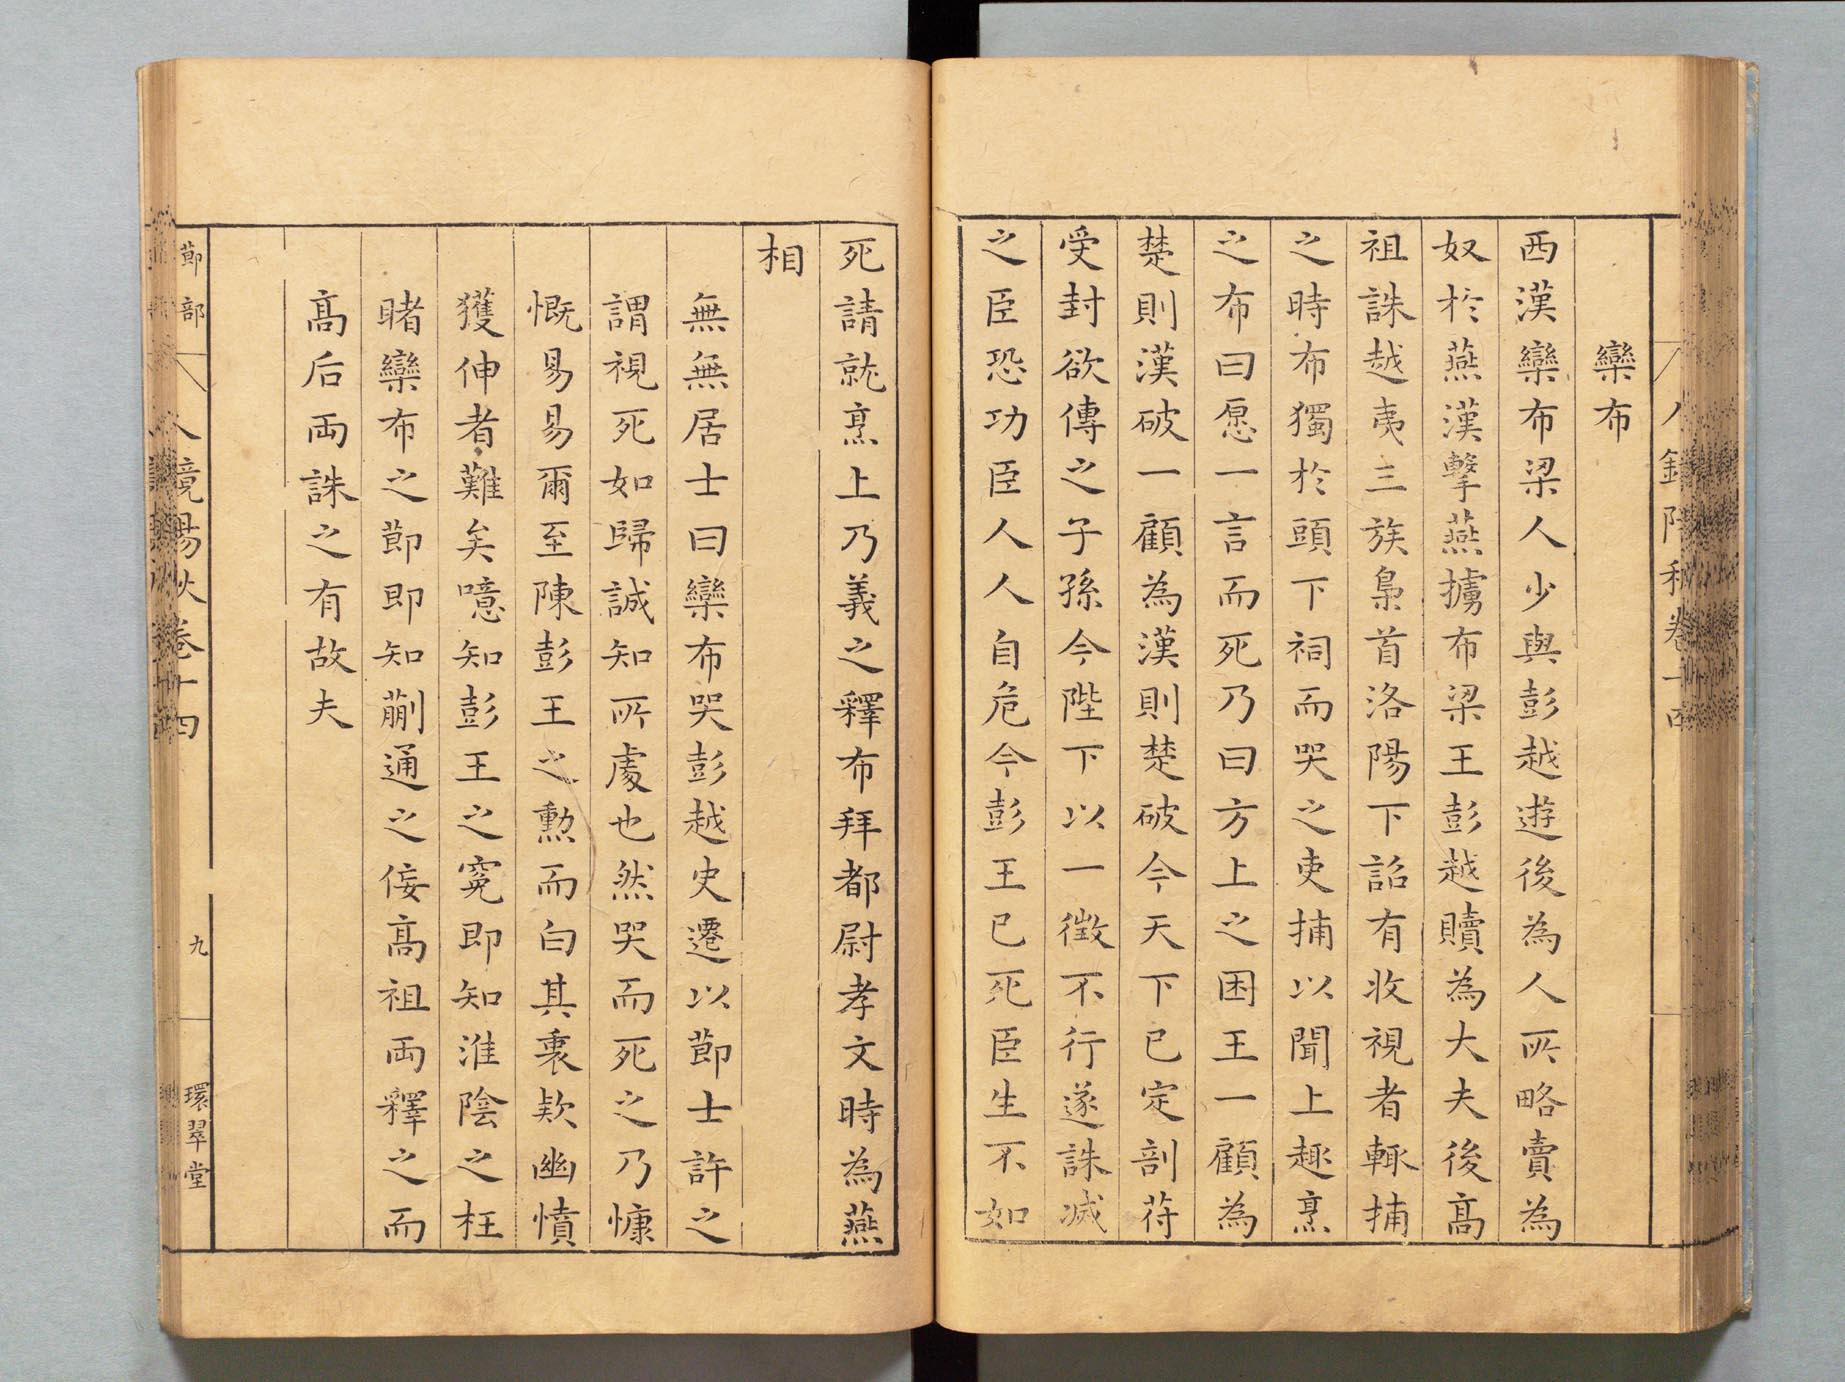 欒布
西漢欒布梁人少與彭越遊後為人所略賣為
奴於燕漢擊燕擄布梁王彭越贖為大夫後高
祖誅越夷三族梟首洛陽下詔有收視者輒捕
之時布獨於頭下祠而哭之吏捕以聞上趣烹
之布曰愿一言而死乃曰方上之困王一顧為
楚則漢破一顧為漢則楚破今天下已定剖苻
受封欲傳之子孫今陛下以一徵不行遂誅滅
之臣恐功臣人人自危今彭王已死臣生不如
死請就烹上乃義之釋布拜都尉孝文時為燕
相
無無居士曰欒布哭彭越史遷以節士許之
謂視死如歸誠知所處也然哭而死之乃慷
慨易易爾至陳彭王之勲而白其衷欵幽憤
獲伸者難矣噫知彭王之寃即知淮陰之枉
睹欒布之節即知蒯通之侫高祖両釋之而
高后両誅之有故夫
節部
人鏡陽秋卷十四
九
環翠堂